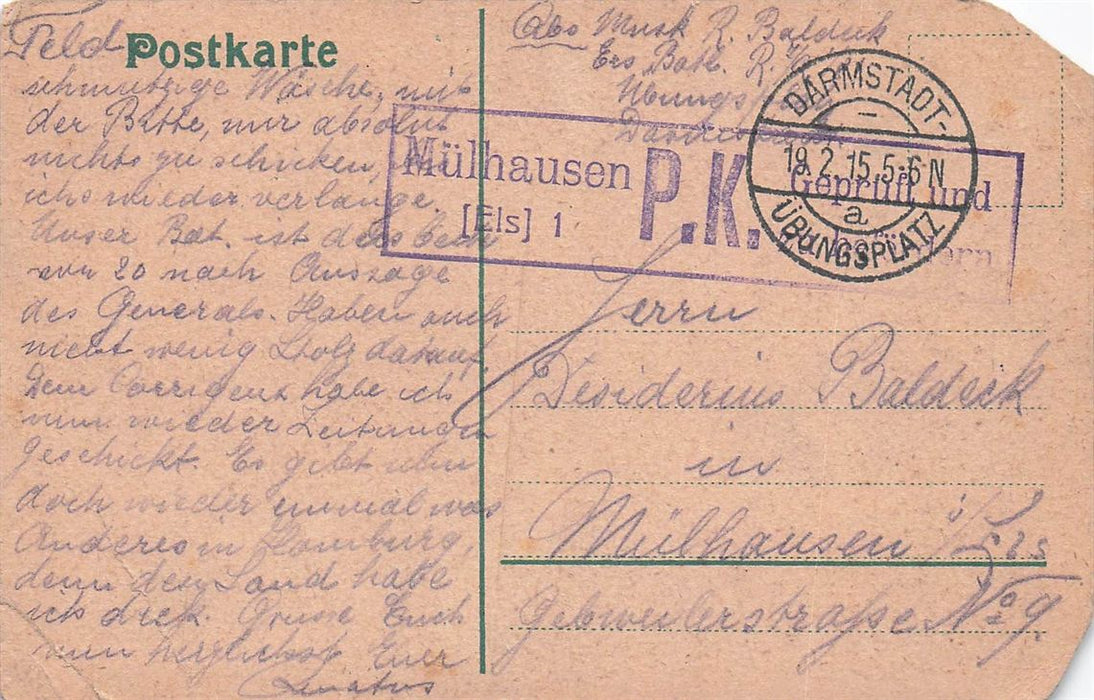 Feld Postkarte
schmutzige Wäsche, mit
der Bitte, nur absolut
nichts zu schicken, bis
ichs wieder verlange.
Unser Bat. ist das
von 20 nach Aussage
des Generals. Haben auch
nicht wenig Stolz darauf.
Dem habe ich
nun wieder Zeitungen
geschickt. Es gibt nun
doch wieder einmal was
Anderes in Homburg,
denn den Sand habe
ich dick. Grüsse Euch
nun herzlichst Euer
Abs Musk R. Baldeck
Ers Batl. R.
Übungs
Mülhausen
[Els] 1
P.K.
Geprüft und
DARMSTADT-
19.2.15.5-6N
a
ÜBUNGSPLATZ
Herrn
Desiderius Baldeck
in
Mülhausen i/Els
Gebweilerstraße No 9.